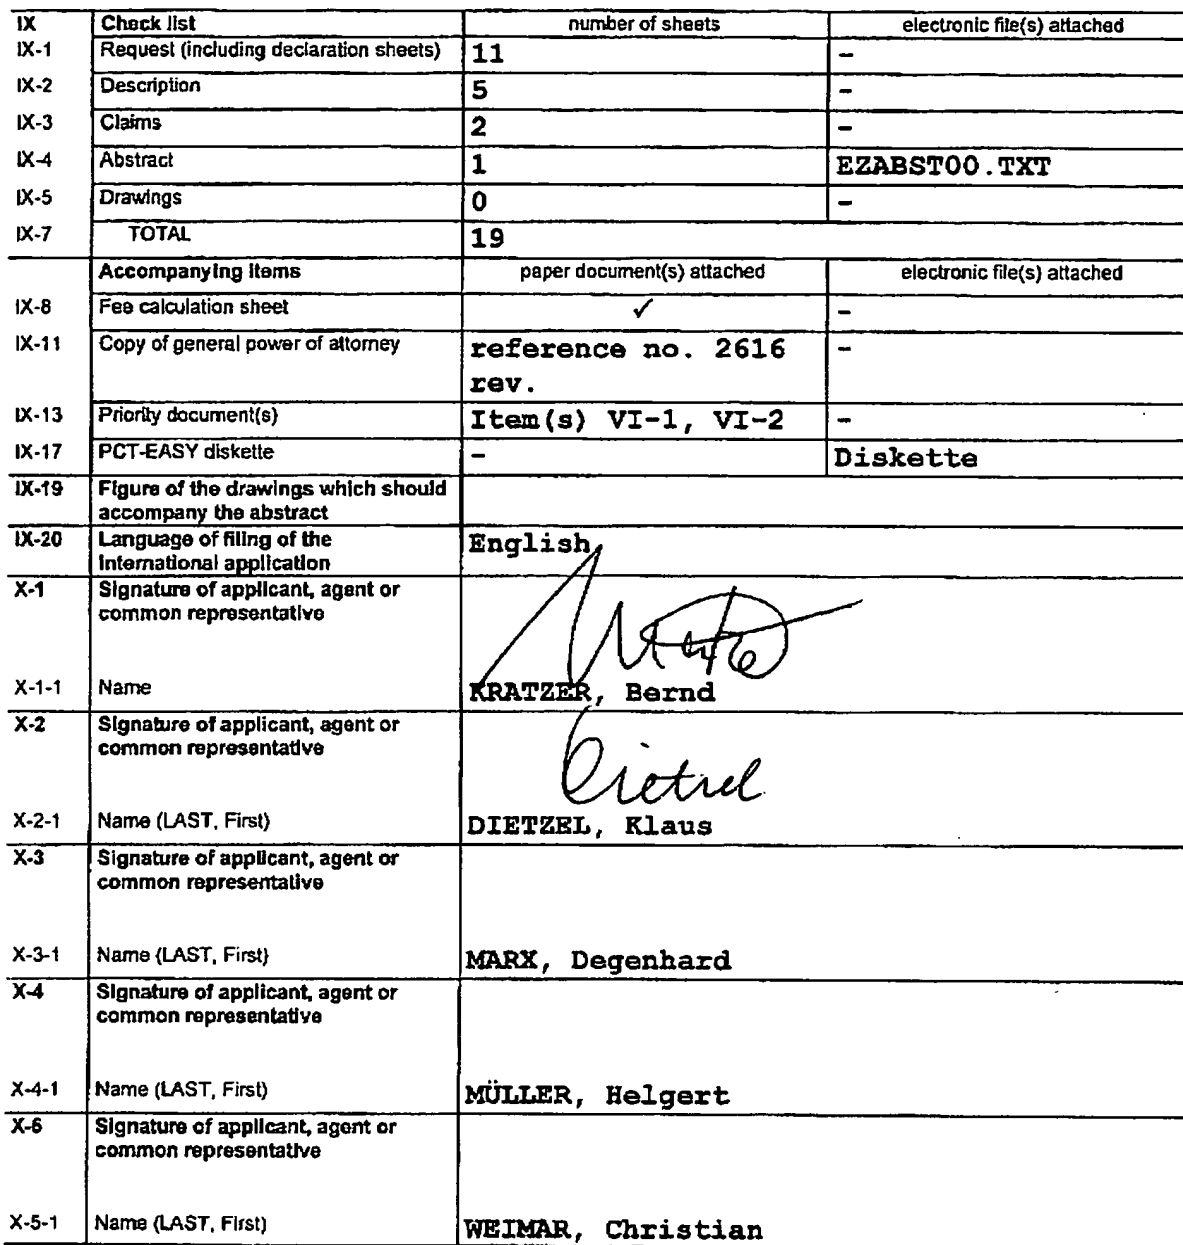 IX Check list number of sheets electronic file(s) attached
IX-1 Request (including declaration sheets) 11 –
IX-2 Description 5 –
IX-3 Claims 2 –
IX-4 Abstract 1 EZABST00.TXT
IX-5 Drawings 0 –
IX-7 TOTAL 19
Accompanying items paper document(s) attached electronic file(s) attached
IX-8 Fee calculation sheet ✓ –
IX-11 Copy of general power of attorney reference no. 2616 –
rev.
IX-13 Priority document(s) Item(s) VI-1, VI-2 –
IX-17 PCT-EASY diskette – Diskette
IX-19 Figure of the drawings which should
accompany the abstract
IX-20 Language of filing of the English
international application
X-1 Signature of applicant, agent or
common representative
X-1-1 Name KRATZER, Bernd
X-2 Signature of applicant, agent or
common representative
Dietzel
X-2-1 Name (LAST, First) DIETZEL, Klaus
X-3 Signature of applicant, agent or
common representative
X-3-1 Name (LAST, First) MARX, Degenhard
X-4 Signature of applicant, agent or
common representative
X-4-1 Name (LAST, First) MÜLLER, Helgert
X-5 Signature of applicant, agent or
common representative
X-5-1 Name (LAST, First) WEIMAR, Christian